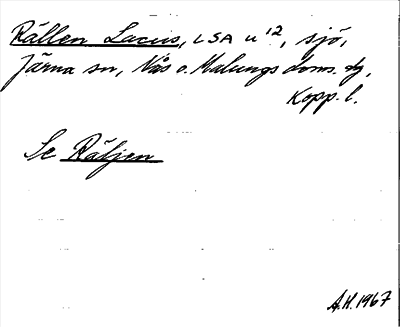 Rällen Lacus, LSA u 12, sjö,
Järna sn, Nås o. Malungs doms. dg,
Kopp. l.
Se Räljen
A.H. 1967